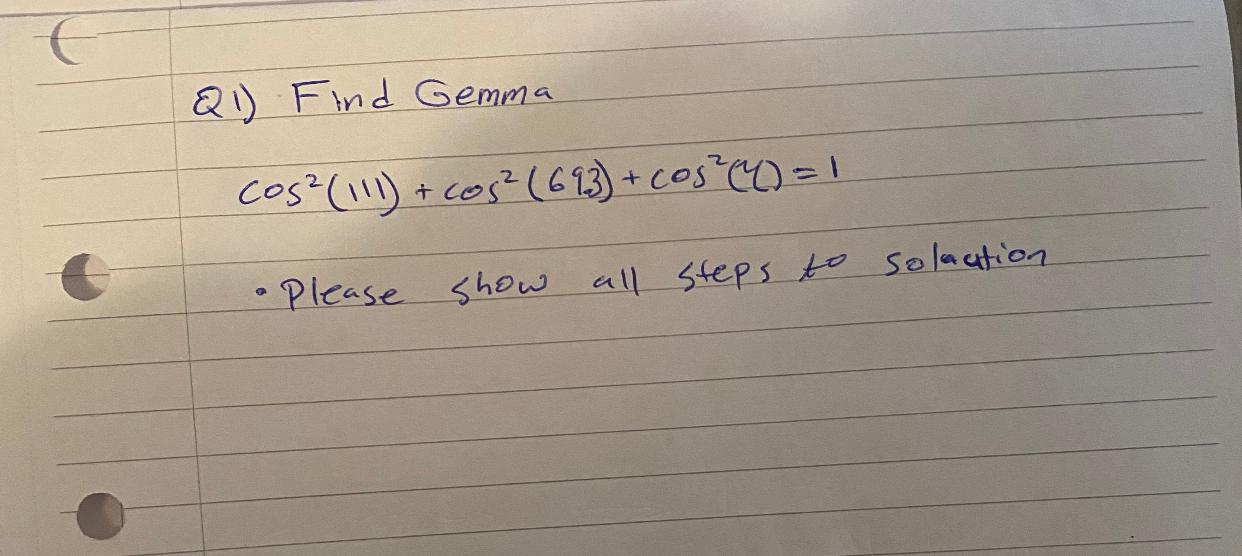 Q1) Find Gemma
cos²(111) + cos²(693) + cos²(γ) = 1
• Please show all steps to solacution